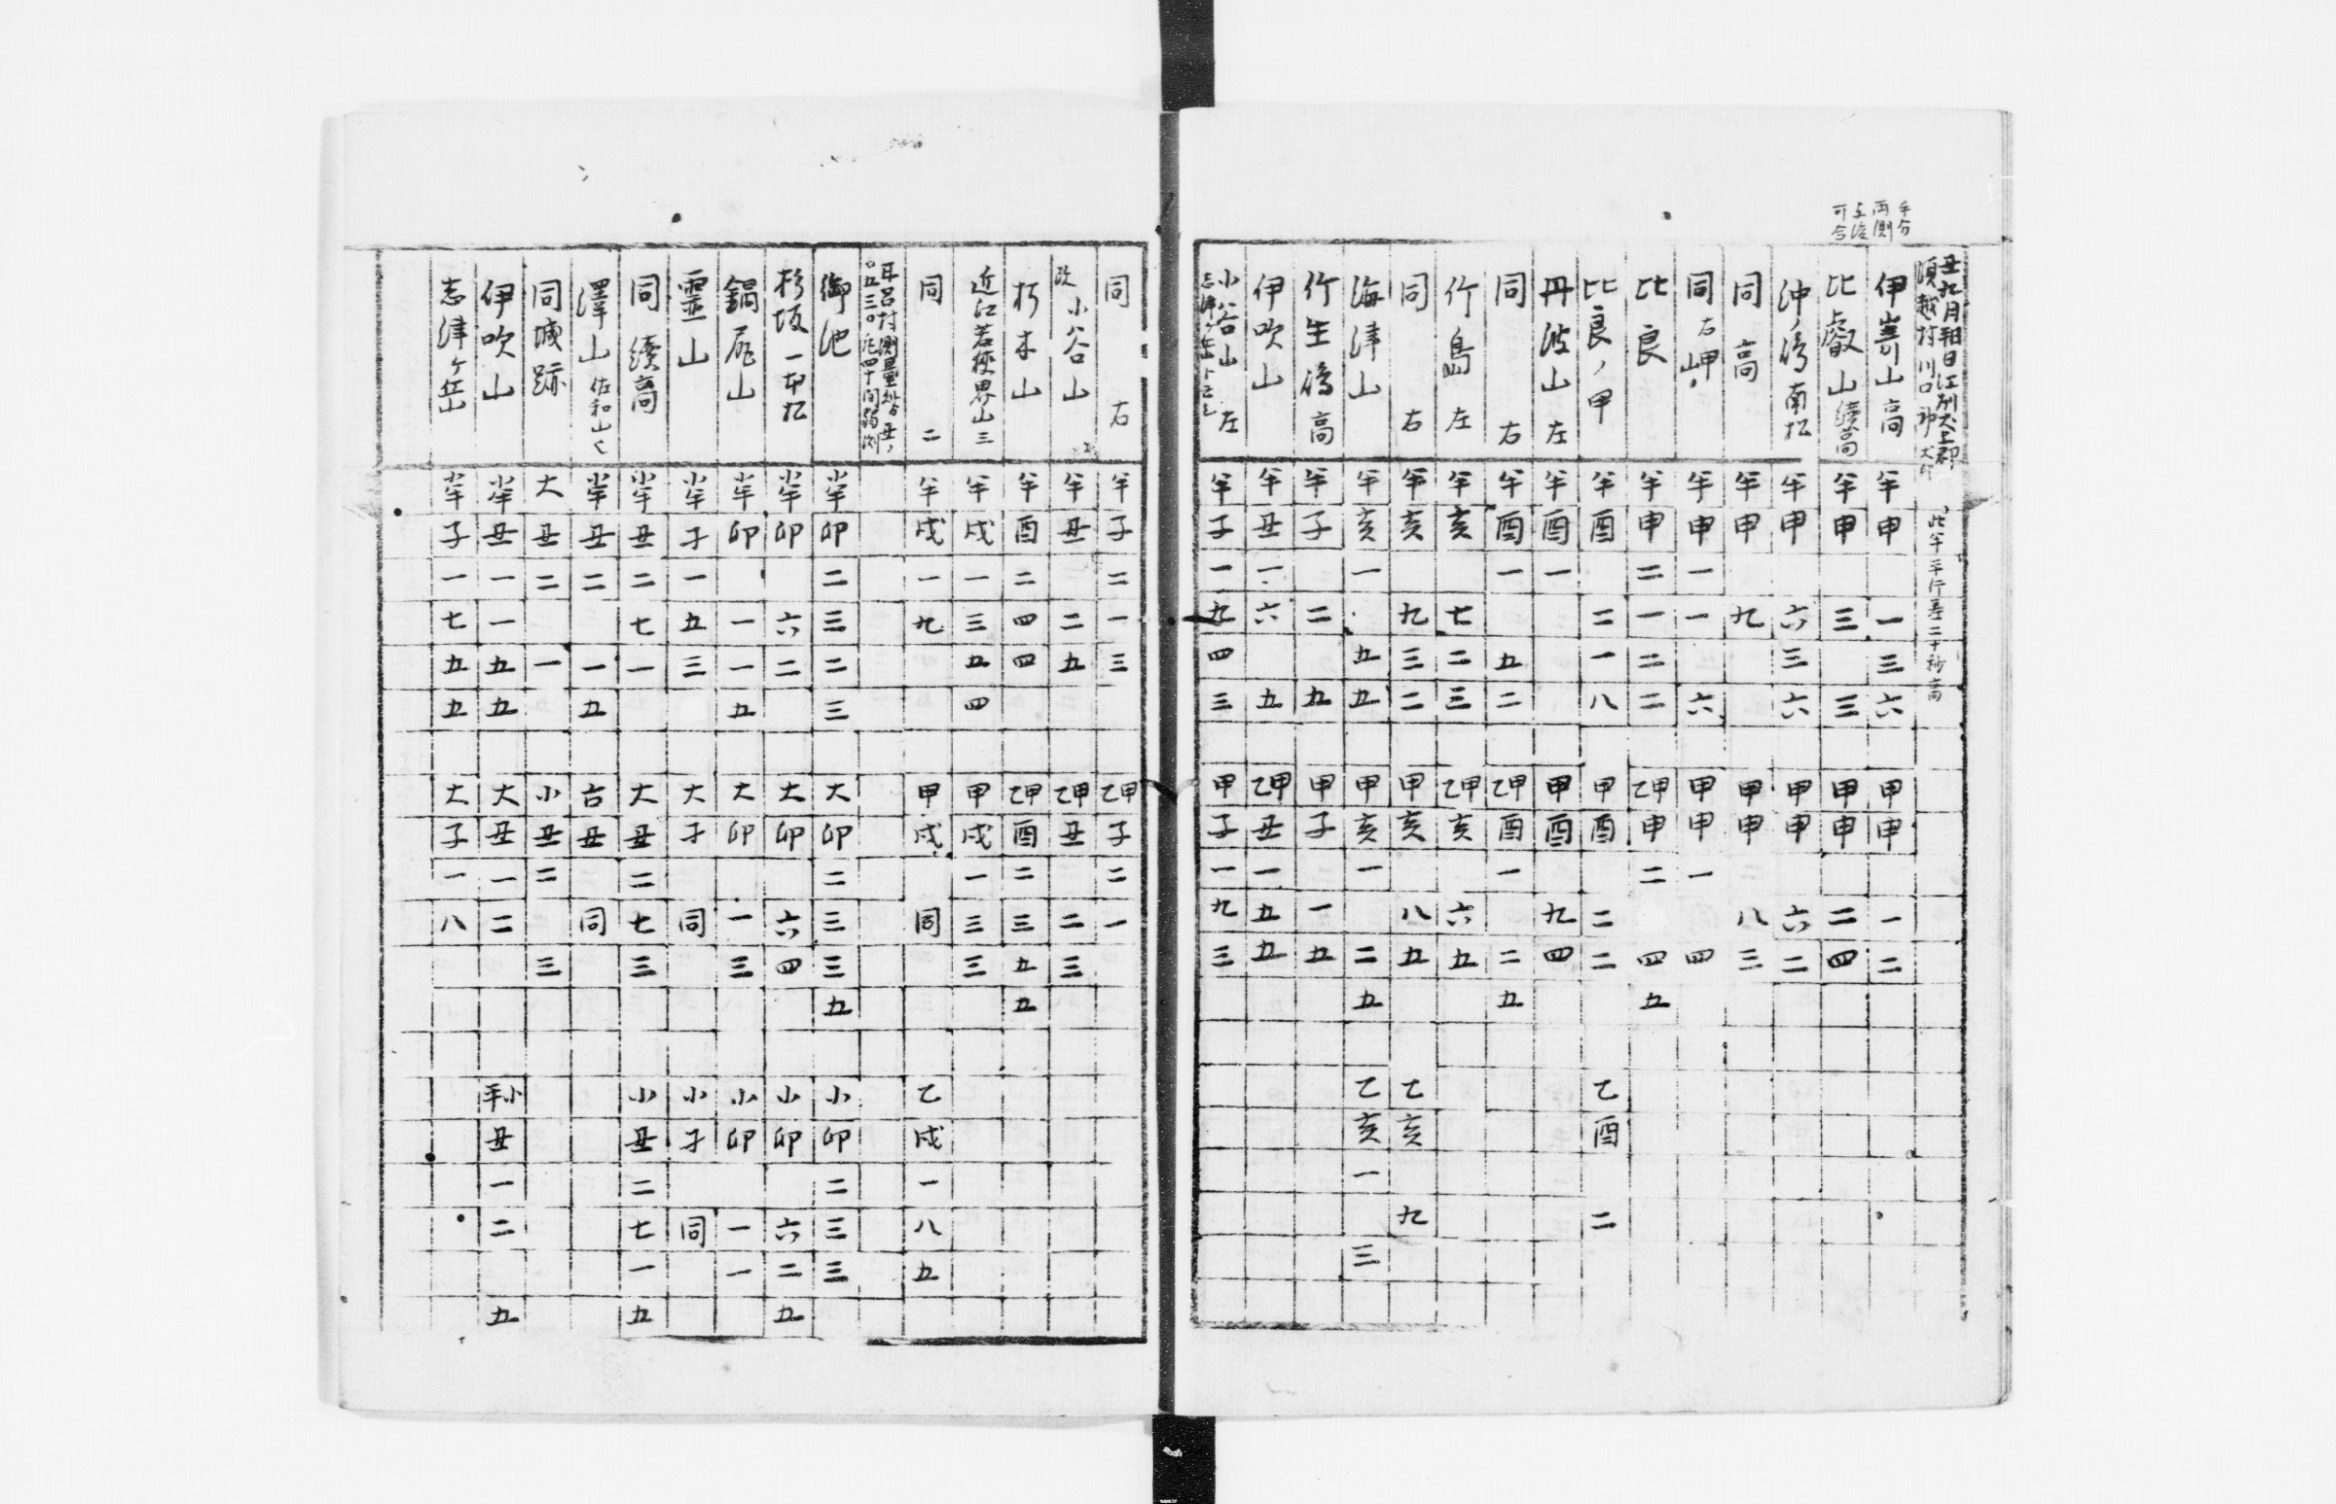 半分
両側
丑九月朔日江州犬上郡
須越村川口印大印 此半平行差二十秒高
伊嵜山高 半申 一三六 甲申 一二
比叡山續高 半申 三 三 甲申 二四
沖ノ島南松 半申 六三六 甲申 六二
同高 半申 九 甲申 八三
同右岬 半申一一 六 甲申一 四
比良 半申二一二二 乙甲申二 四五
比良ノ甲 半酉 二一八 甲酉 二二 乙酉 二
丹波山左 半酉一 甲酉 九四
同 右 半酉一 五二 乙甲酉一 二五
竹島左 半亥 七二三 乙甲亥 六五
同 右 半亥 九三二 甲亥 八五 乙亥 九
海津山 半亥一 五五 甲亥一 二五 乙亥一 三
竹生島高 半子 二 五 甲子 一五
伊吹山 半丑一六 五 乙甲丑一五五
小谷山左 半子一九四三 甲子一九三
同 右 半子二一三 乙甲子二一
改小谷山 半丑 二五 乙甲丑 二三
朽木山 半酉二四四 乙甲酉二三五五
近江若狹界山三 半戌一三五四 甲戌一三三
同 二 半戌一九 甲戌 同 乙戌一八五
耳呂村測量所丑
五三〇 四十間
御池 小半卯二三二三 大卯二三三五 小卯二三三
杉坂一本松 小半卯 六二 大卯 六四 小卯 六二五
鍋尾山 小半卯 一一五 大卯 一三 小卯 一一
霊山 小半子一五三 大子 同 小子 同
同續高 小半丑二七一 大丑二七三 小丑二七一五
澤山佐和山 小半丑二 一五 古丑 同
同城跡 大丑二 一 小丑二 三
伊吹山 小半丑一一五五 大丑一二 半小丑一二 五
志津ヶ岳 小半子一七五五 大子一八